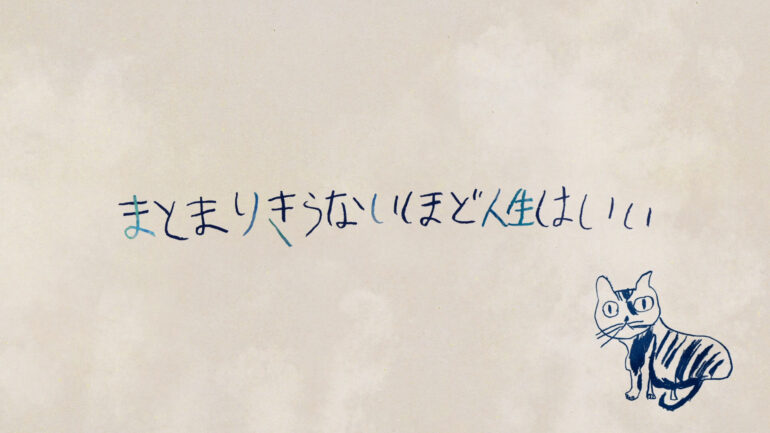 まとまりきらないほど人生はいい